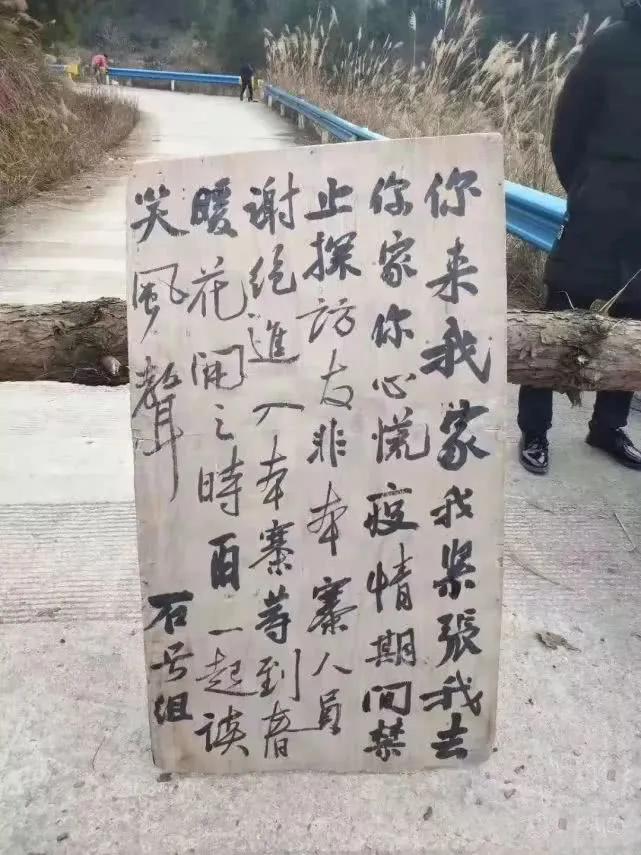 你来我家我紧張我去
你家你心慌疫情期间禁
止探访友非本寨人員
谢绝進入本寨等到春
暖花開之時再一起谈
笑風聲
石号组